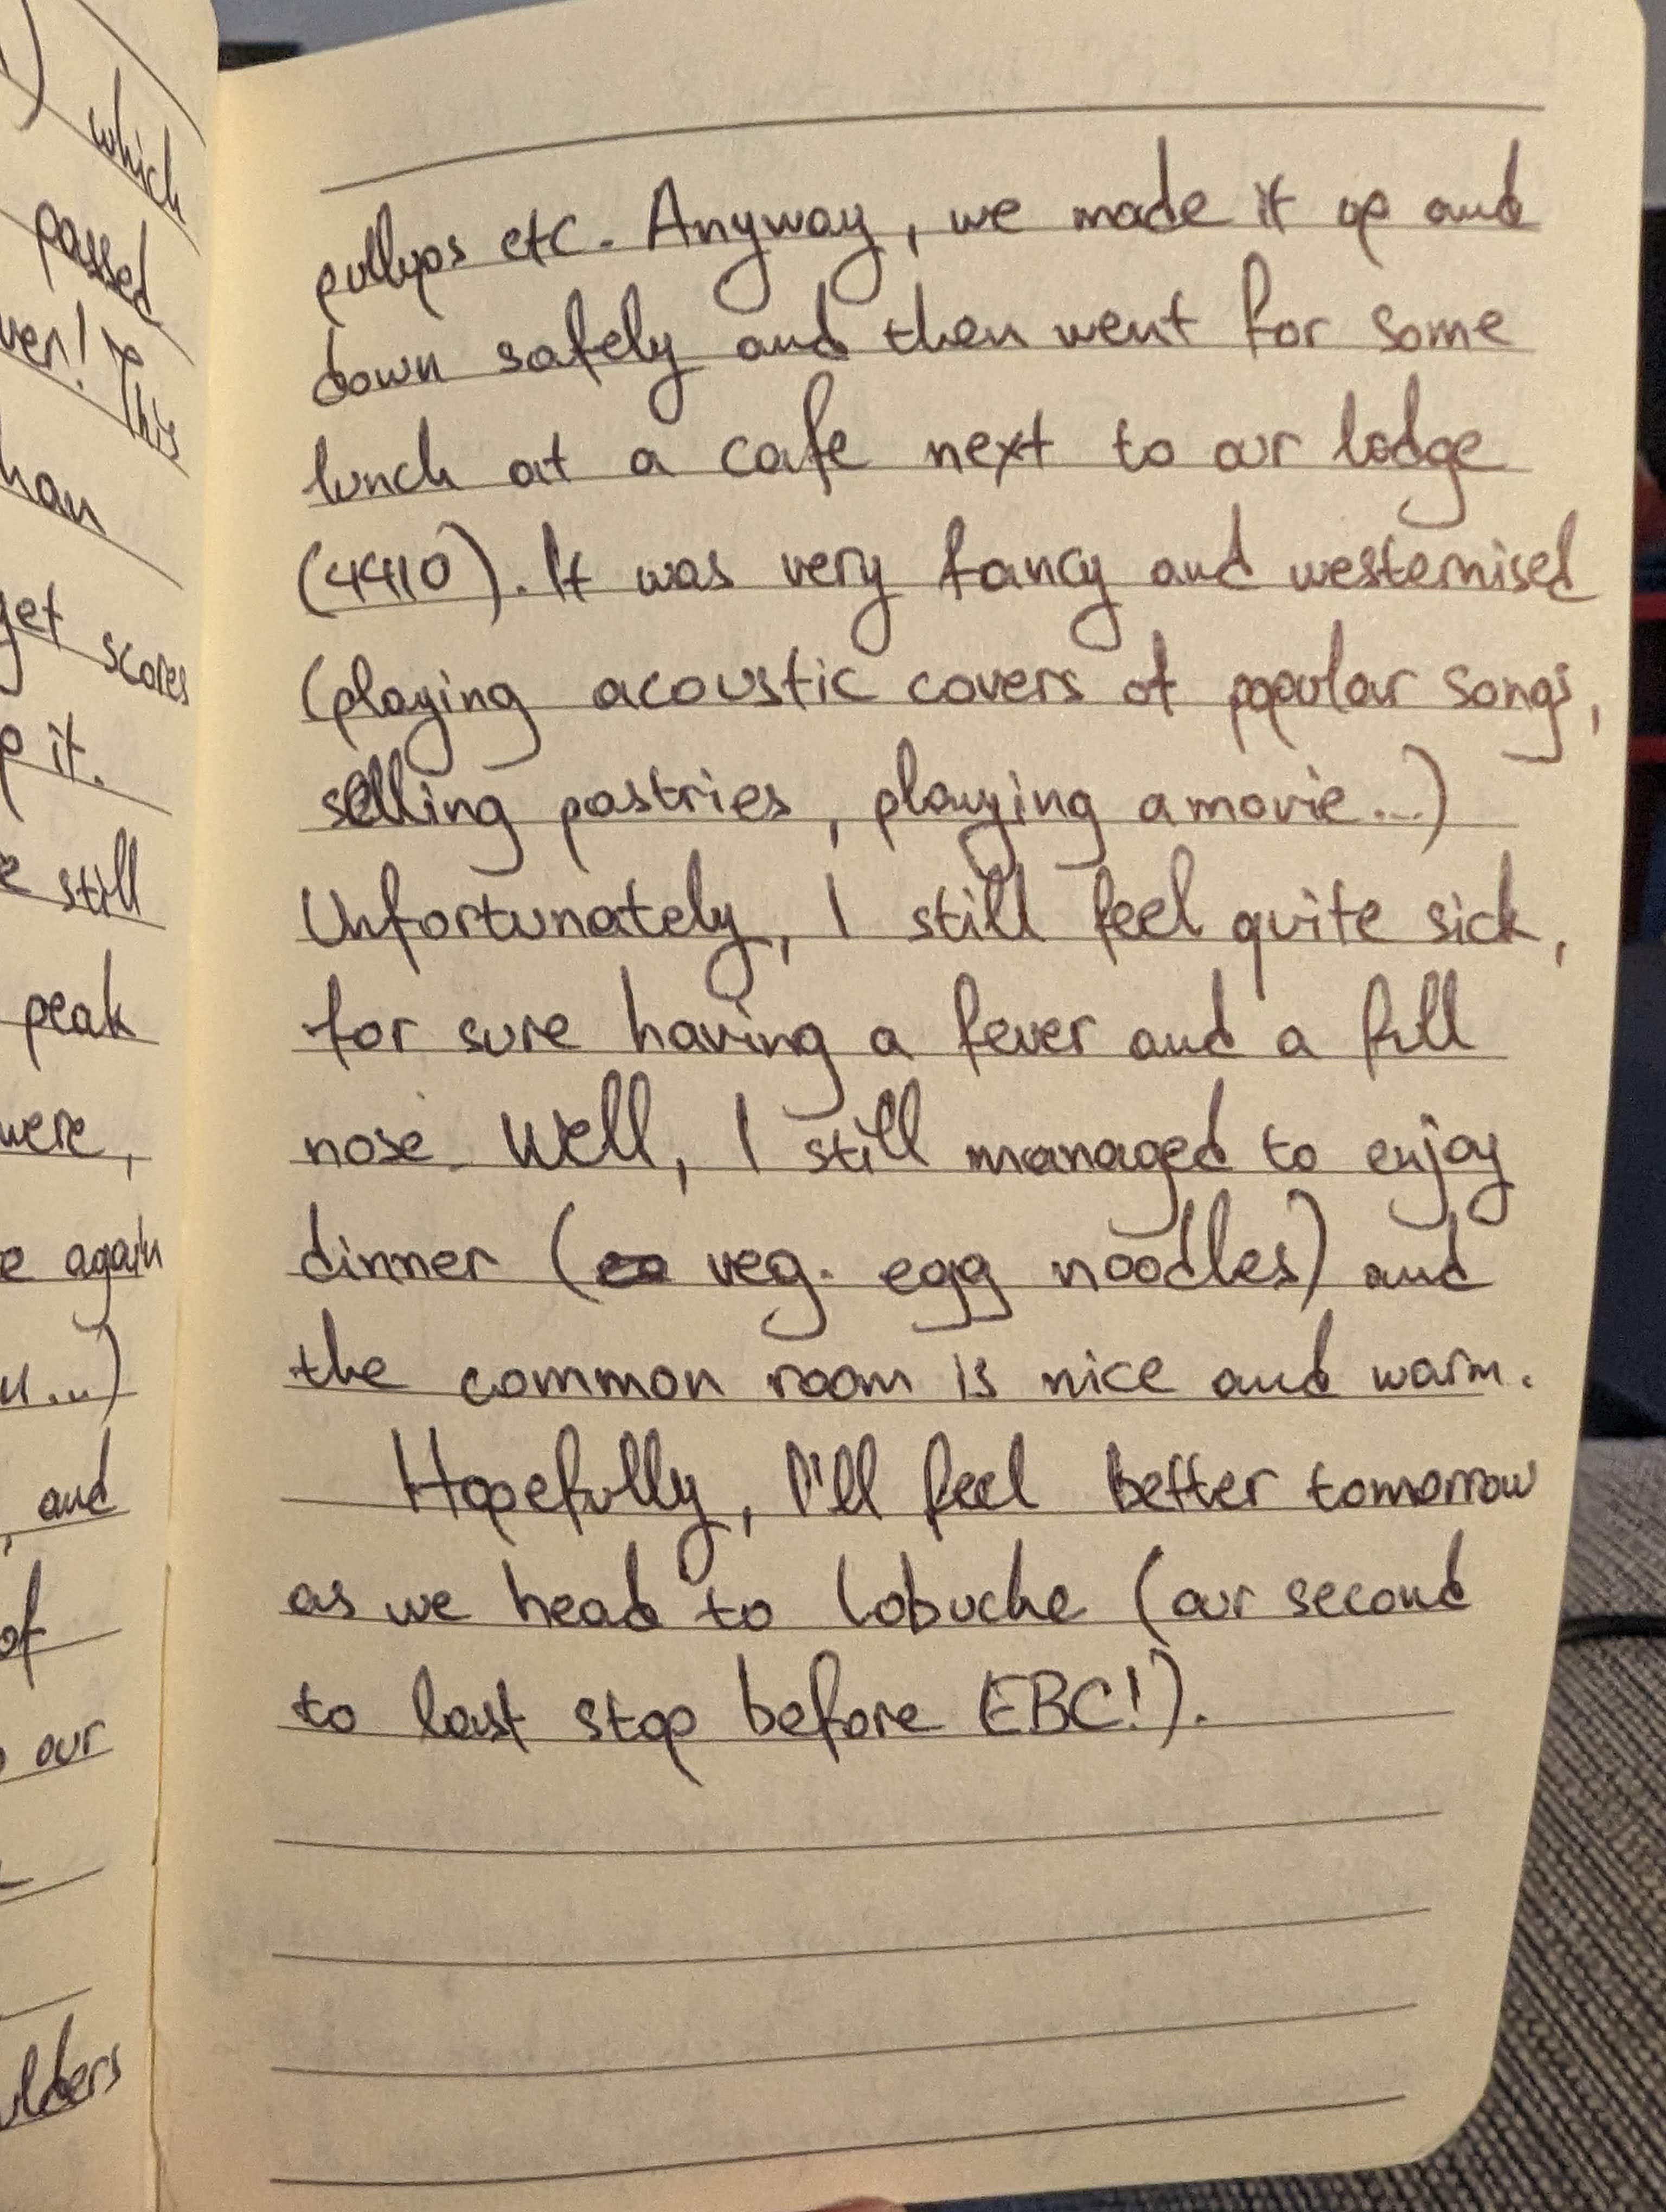 which
passed
ver! This
han
get scores
p it.
e still
peak
were,
e again
u...)
, and
of
our
ulders
pullups etc. Anyway, we made it up and
down safely and then went for some
lunch at a cafe next to our lodge
(4410). It was very fancy and westernised
(playing acoustic covers of popular songs,
selling pastries, playing a movie...)
Unfortunately, I still feel quite sick,
for sure having a fever and a full
nose. Well, I still managed to enjoy
dinner (veg. egg noodles) and
the common room is nice and warm.
Hopefully, I'll feel better tomorrow
as we head to Lobuche (our second
to last stop before EBC!).